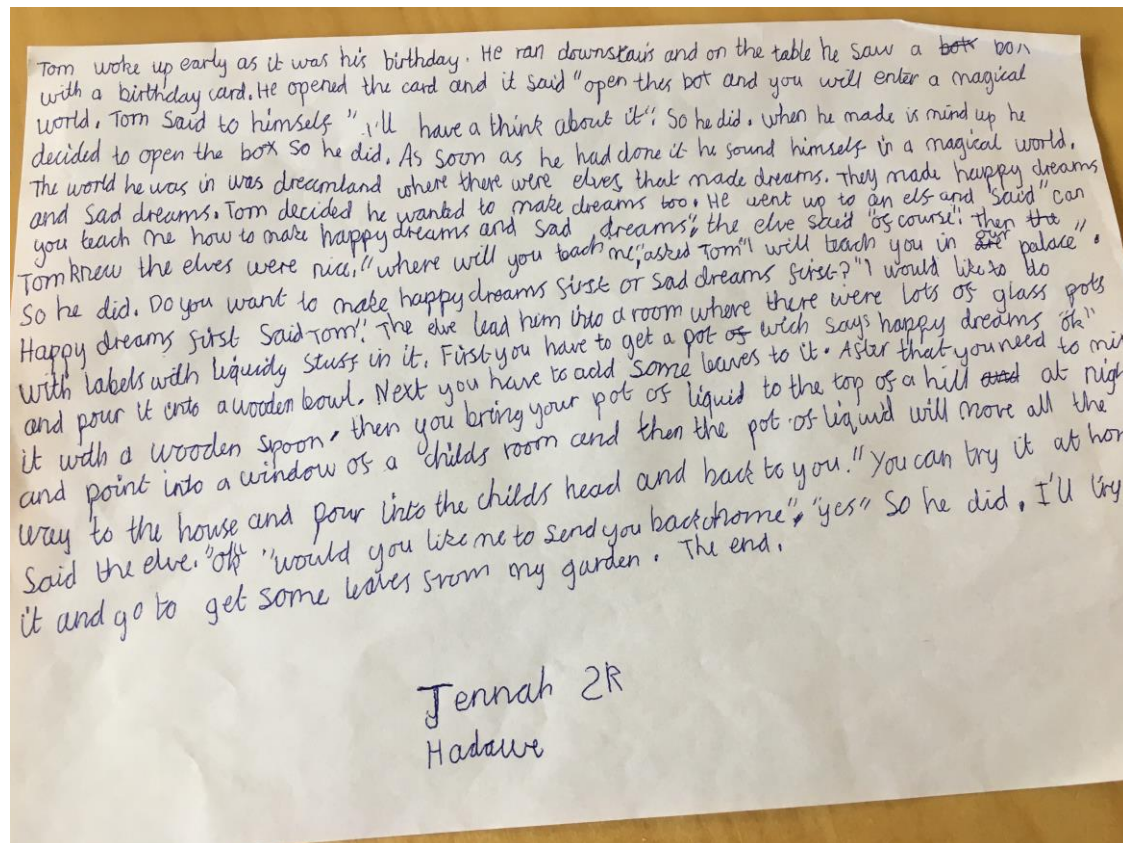 Tom woke up early as it was his birthday. He ran downstairs and on the table he saw a box box
with a birthday card. He opened the card and it said "open this box and you will enter a magical
world. Tom said to himself "I'll have a think about it". So he did. when he made is mind up he
decided to open the box so he did. As soon as he had done it he found himself in a magical world.
The world he was in was dreamland where there were elves that made dreams. They made happy dreams
and sad dreams. Tom decided he wanted to make dreams too. He went up to an elf and said "can
you teach me how to make happy dreams and sad dreams", the elve said "of course". Then the
Tom knew the elves were nice. "where will you teach me", asked Tom "I will teach you in our palace".
So he did. Do you want to make happy dreams first or sad dreams first?" "I would like to do
Happy dreams first said Tom". The elve lead him into a room where there were lots of glass pots
with labels with liquidy stuff in it. First you have to get a pot of wich says happy dreams "ok"
and pour it into a wooden bowl. Next you have to add some leaves to it. After that you need to mi
it with a wooden spoon, then you bring your pot of liquid to the top of a hill and at nigh
and point into a window of a childs room and then the pot of liquid will move all the
way to the house and pour into the childs head and back to you." You can try it at hom
said the elve. "ok" "would you like me to send you back home", "yes" So he did. I'll try
it and go to get some leaves from my garden. The end.
Jennah 2R
Hadawe